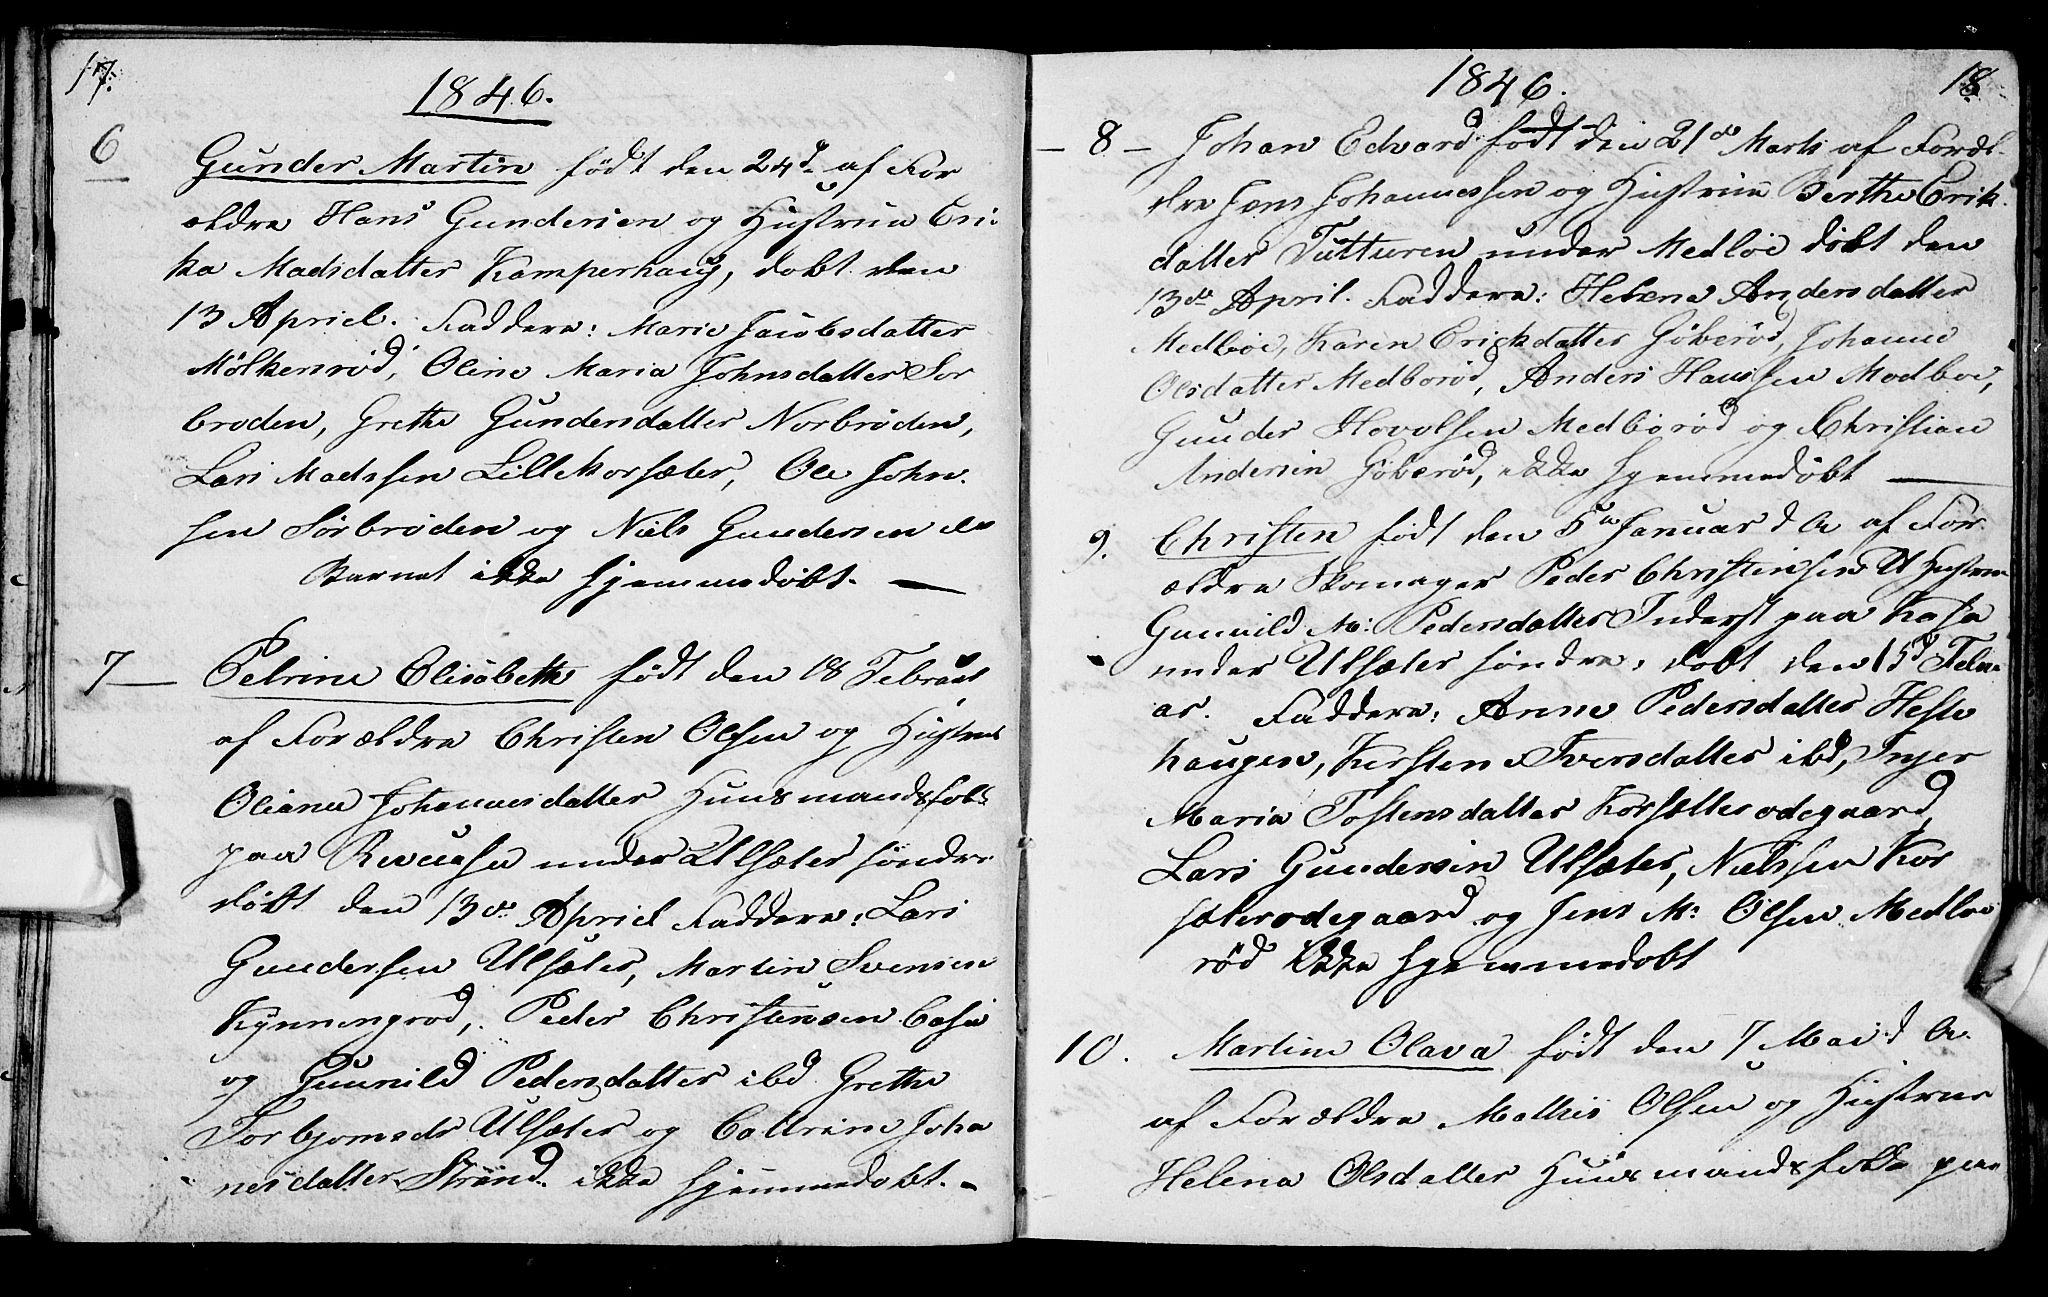 17.
1846.
6
Gunder Martin født den 24d. af For
ældre Hans Gundersen og Hustrue Eri-
ka Madsdatter Kamperhaug, døbt den
13 Apriel. Faddere: Marie Jacobsdatter
Mölkenröd, Oline Maria Johnsdatter Sor
broden, Grethe Gundersdatter Norbröden,
Lars Madssen Lille Korsæter, Ole John-
sen Sörbröden og Niels Gundersen
Barnet ikke hjemmedöbt. —
7 — Petrine Elisabeth født den 18 Februar
af Forældre Christen Olsen og Hustrue
Oliana Johannesdatter Huusmandsfolk
paa under Ulsæter söndre
döbt den 13de Apriel Faddere: Lars
Gundersen Ulsæter, Martin Svensen
Kynningröd, Peder Christensen Casa
og Gunnild Pedersdatter ibd Grethe
Torbjornsdr Ulsæter og Cathrine Joha
nesdatter Strand. ikke hjemmedobt. -
1846.
18
— 8 — Johan Edvard født den 21de Marts af Foræl-
dre Jens Johannessen og Hustrue Berthe Erik-
datter Tutturen under Medböe döbt den
13de April. Faddere: Helene Andersdatter
Medböe, Karen Erickdatter Göberöd, Johanne
Olsdatter Medboröd, Anders Hanssen Medboe,
Gunder Hovelsen Medböröd og Christian
Andersen Göberöd, ikke hjemmedöbt —
9. Christen født den 5te Januar d A af For-
ældre Skomager Peder Christensen Hustrue
Gunnild M: Pedersdatter Inderst paa Kasa
under Ulsæter söndre, dobt den 15d Febru-
ar. Faddere: Anne Pedersdatter Heste
haugen, Kersten Iversdatter ibd, Inger
Maria Tostensdatter Korsætterodegaard,
Lars Gundersen Ulsæter, Nielssen Kor
sæterodegaard og Jens M: Olsen Medboe
röd ikke hjemmedobt
10. Martine Olava født den 7 Mai d A.
af Forældre Mathis Olsen og Hustrue
Helena Olsdatter Huusmandsfolk paa